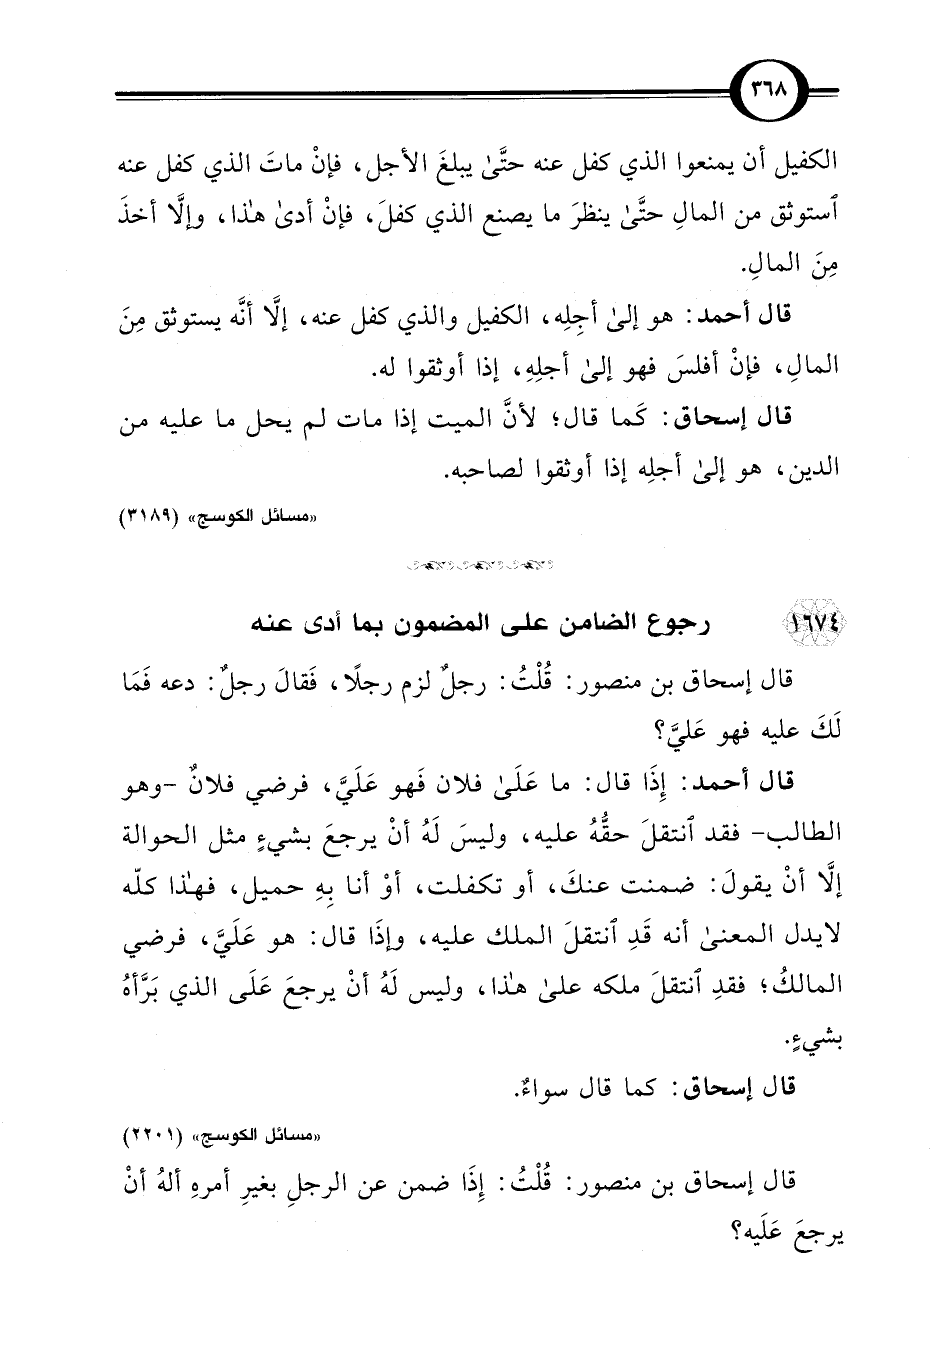 ٣٦٨
الكفيل أن يمنعوا الذي كفل عنه حتَّىٰ يبلغَ الأجل، فإنْ ماتَ الذي كفل عنه
ٱستوثق من المالِ حتَّىٰ ينظرَ ما يصنع الذي كفلَ، فإنْ أدىٰ هٰذا، وإلَّا أخذَ
مِنَ المالِ.
قال أحمد: هو إلىٰ أجِلِه، الكفيل والذي كفل عنه، إلَّا أنَّه يستوثق مِنَ
المالِ، فإنْ أفلسَ فهو إلىٰ أجلِهِ، إذا أوثقوا له.
قال إسحاق: كَما قال؛ لأنَّ الميت إذا مات لم يحل ما عليه من
الدين، هو إلىٰ أجلِه إذا أوثقوا لصاحبه.
«مسائل الكوسج» (٣١٨٩)
١٦٧٤ رجوع الضامن على المضمون بما أدى عنه
قال إسحاق بن منصور: قُلْتُ: رجلٌ لزم رجلًا، فَقالَ رجلٌ: دعه فَمَا
لَكَ عليه فهو عَليَّ؟
قال أحمد: إِذَا قال: ما عَلَىٰ فلان فَهو عَلَيَّ، فرضي فلانٌ -وهو
الطالب- فقد ٱنتقلَ حقُّهُ عليه، وليسَ لَهُ أنْ يرجعَ بشيءٍ مثل الحوالة
إلَّا أنْ يقولَ: ضمنت عنكَ، أو تكفلت، أوْ أنا بِهِ حميل، فهٰذا كلّه
لايدل المعنىٰ أنه قَدِ ٱنتقلَ الملك عليه، وإذَا قال: هو عَلَيَّ، فرضي
المالكُ؛ فقدِ ٱنتقلَ ملكه علىٰ هٰذا، وليس لَهُ أنْ يرجعَ عَلَى الذي بَرَّأهُ
بشيءٍ.
قال إسحاق: كما قال سواءٌ.
«مسائل الكوسج» (٢٢٠١)
قال إسحاق بن منصور: قُلْتُ: إِذَا ضمن عن الرجلِ بغيرِ أمرهِ ألهُ أنْ
يرجعَ عَلَيه؟